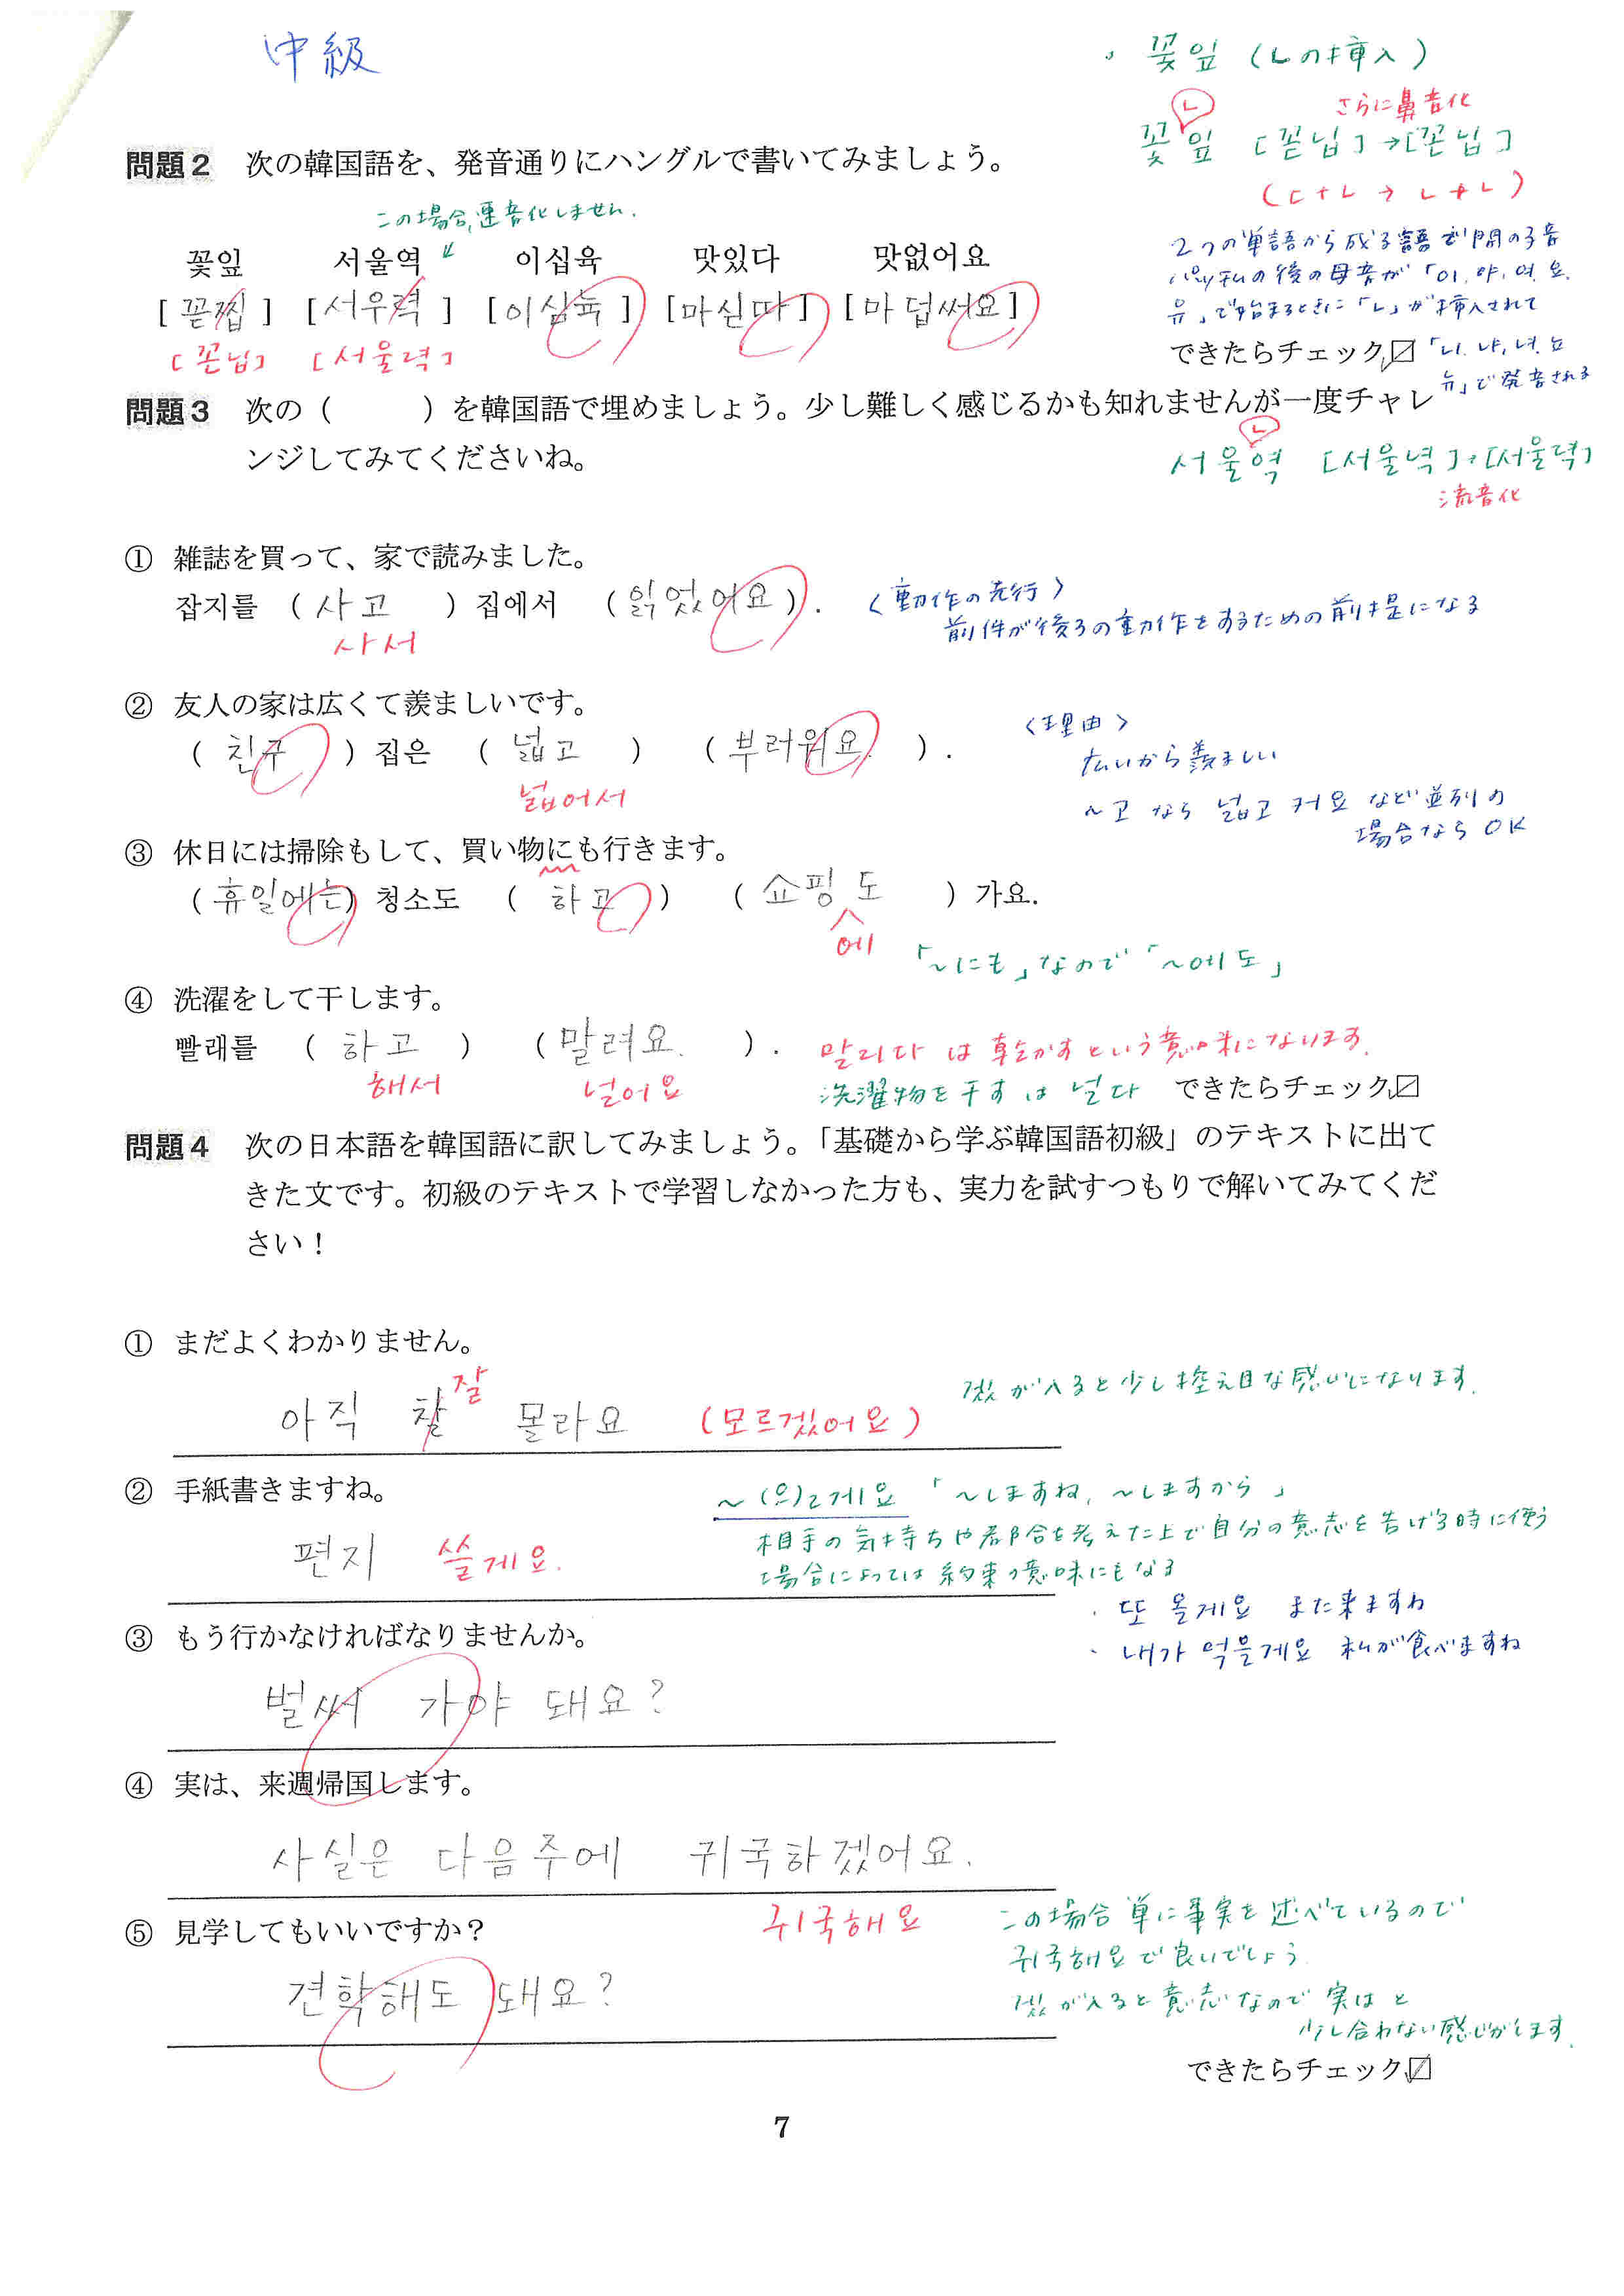 中級
・ 꽃잎 (ㄴの挿入)
ㄴ
さらに鼻音化
꽃잎 [꼳닙]→[꼰닙]
(ㄷ+ㄴ → ㄴ+ㄴ)
問題2 次の韓国語を、発音通りにハングルで書いてみましょう。
この場合、連音化しません.
꽃잎 서울역 이십육 맛있다 맛없어요
[꼳찝] [서우력] [이심뉵] [마싣따] [마덥써요]
[꼰닙] [서울력]
2つの単語から成る語で前の子音
パッチムの後の母音が「이, 야, 여, 요,
유」で始まるときに「ㄴ」が挿入されて
できたらチェック☑ 「니, 냐, 녀, 뇨
뉴」で発音される
問題3 次の( )を韓国語で埋めましょう。少し難しく感じるかも知れませんが一度チャレ
ンジしてみてくださいね。
ㄴ
서울역 [서울녁]→[서울력]
流音化
① 雑誌を買って、家で読みました。
잡지를 (사고) 집에서 (읽었어요).
사서
〈動作の先行〉
前件が後ろの動作をするための前提になる
② 友人の家は広くて羨ましいです。
(친구) 집은 (넓고) (부러워요.).
넓어서
〈理由〉
広いから羨ましい
~고 なら 넓고 커요 など並列の
場合なら OK
③ 休日には掃除もして、買い物にも行きます。
(휴일에는) 청소도 (하고) (쇼핑도) 가요.
에
「~にも」なので「~에도」
④ 洗濯をして干します。
빨래를 (하고) (말려요.).
해서 널어요
말리다 は 乾かす という意味になります.
洗濯物を干す は 널다 できたらチェック☑
問題4 次の日本語を韓国語に訳してみましょう。「基礎から学ぶ韓国語初級」のテキストに出て
きた文です。初級のテキストで学習しなかった方も、実力を試すつもりで解いてみてくだ
さい！
① まだよくわかりません。
잘
아직 찰 몰라요 (모르겠어요)
겠 が入ると少し控え目な感じになります.
② 手紙書きますね。
편지 쓸게요.
~(으)ㄹ게요 「~しますね, ~しますから」
相手の気持ちや都合を考えた上で自分の意志を告げる時に使う
場合によっては 約束の意味にもなる
・ 또 올게요 また来ますね
・ 내가 먹을게요 私が食べますね
③ もう行かなければなりませんか。
벌써 가야 돼요?
④ 実は、来週帰国します。
사실은 다음주에 귀국하겠어요.
귀국해요
この場合 単に事実を述べているので
귀국해요 で良いでしょう.
겠 が入ると意志なので 実は と
少し合わない感じがします.
⑤ 見学してもいいですか？
견학해도 돼요?
できたらチェック☑
7